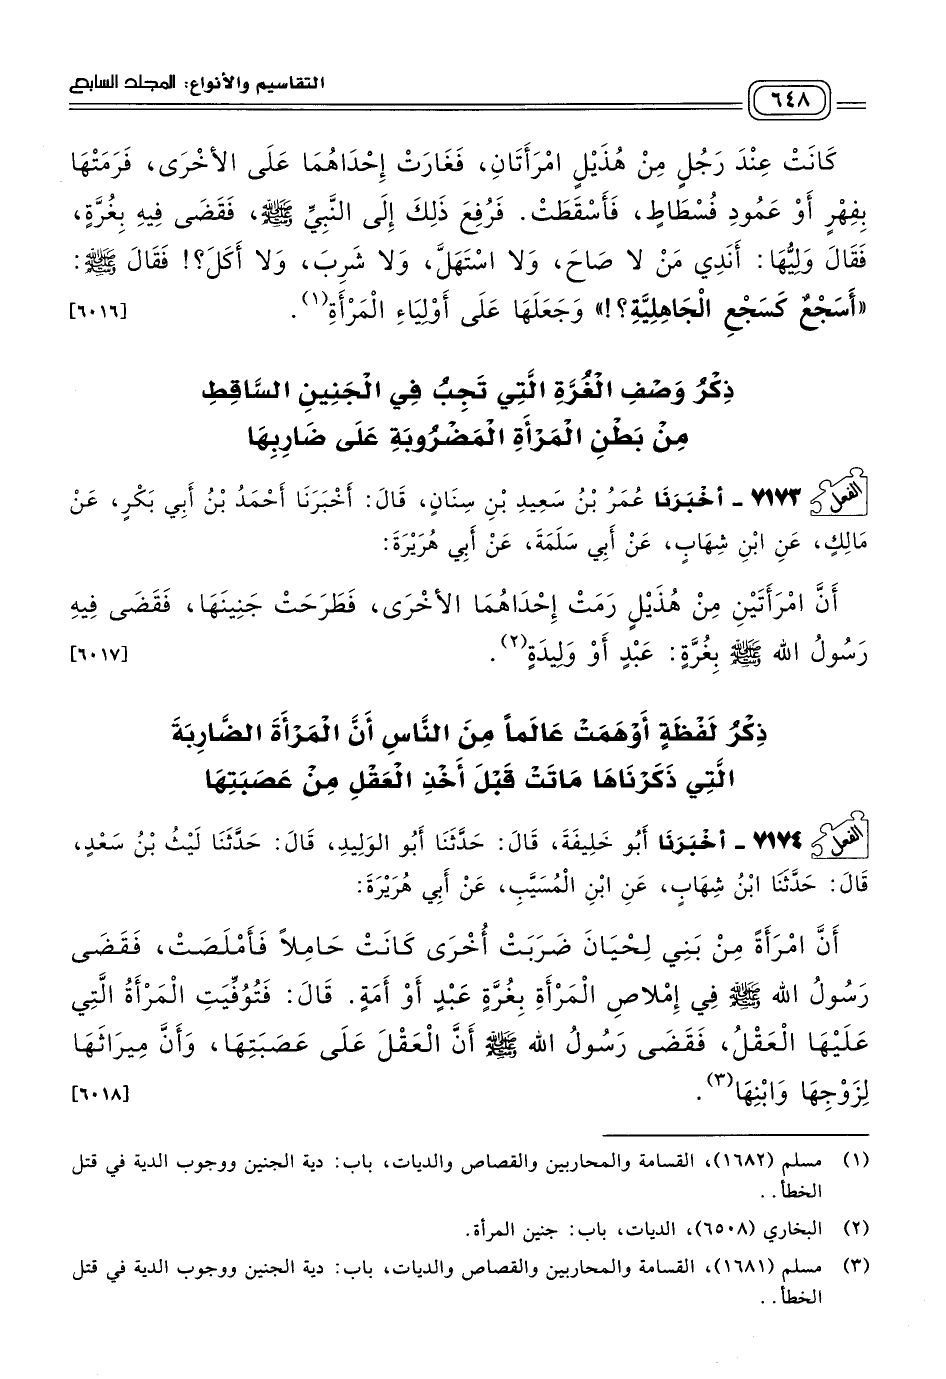 التقاسيم والأنواع: المجلد السابع
٦٤٨
كَانَتْ عِنْدَ رَجُلٍ مِنْ هُذَيْلٍ امْرَأَتَانِ، فَغَارَتْ إِحْدَاهُمَا عَلَى الأُخْرَى، فَرَمَتْهَا
بِفِهْرٍ أَوْ عَمُودِ فُسْطَاطٍ، فَأَسْقَطَتْ. فَرُفِعَ ذَلِكَ إِلَى النَّبِيِّ ﷺ، فَقَضَى فِيهِ بِغُرَّةٍ،
فَقَالَ وَلِيُّهَا: أَنَدِي مَنْ لا صَاحَ، وَلا اسْتَهَلَّ، وَلا شَرِبَ، وَلا أَكَلَ؟! فَقَالَ ﷺ:
«أَسَجْعٌ كَسَجْعِ الْجَاهِلِيَّةِ؟!» وَجَعَلَهَا عَلَى أَوْلِيَاءِ الْمَرْأَةِ(١). [٦٠١٦]
ذِكْرُ وَصْفِ الْغُرَّةِ الَّتِي تَجِبُ فِي الْجَنِينِ السَّاقِطِ
مِنْ بَطْنِ الْمَرْأَةِ الْمَضْرُوبَةِ عَلَى ضَارِبِهَا
الفعل ٧١٧٣ - أَخْبَرَنَا عُمَرُ بْنُ سَعِيدِ بْنِ سِنَانٍ، قَالَ: أَخْبَرَنَا أَحْمَدُ بْنُ أَبِي بَكْرٍ، عَنْ
مَالِكٍ، عَنِ ابْنِ شِهَابٍ، عَنْ أَبِي سَلَمَةَ، عَنْ أَبِي هُرَيْرَةَ:
أَنَّ امْرَأَتَيْنِ مِنْ هُذَيْلٍ رَمَتْ إِحْدَاهُمَا الأُخْرَى، فَطَرَحَتْ جَنِينَهَا، فَقَضَى فِيهِ
رَسُولُ الله ﷺ بِغُرَّةٍ: عَبْدٍ أَوْ وَلِيدَةٍ(٢). [٦٠١٧]
ذِكْرُ لَفْظَةٍ أَوْهَمَتْ عَالَماً مِنَ النَّاسِ أَنَّ الْمَرْأَةَ الضَّارِبَةَ
الَّتِي ذَكَرْنَاهَا مَاتَتْ قَبْلَ أَخْذِ الْعَقْلِ مِنْ عَصَبَتِهَا
الفعل ٧١٧٤ - أَخْبَرَنَا أَبُو خَلِيفَةَ، قَالَ: حَدَّثَنَا أَبُو الْوَلِيدِ، قَالَ: حَدَّثَنَا لَيْثُ بْنُ سَعْدٍ،
قَالَ: حَدَّثَنَا ابْنُ شِهَابٍ، عَنِ ابْنِ الْمُسَيَّبِ، عَنْ أَبِي هُرَيْرَةَ:
أَنَّ امْرَأَةً مِنْ بَنِي لِحْيَانَ ضَرَبَتْ أُخْرَى كَانَتْ حَامِلاً فَأَمْلَصَتْ، فَقَضَى
رَسُولُ الله ﷺ فِي إِمْلاصِ الْمَرْأَةِ بِغُرَّةٍ عَبْدٍ أَوْ أَمَةٍ. قَالَ: فَتُوُفِّيَتِ الْمَرْأَةُ الَّتِي
عَلَيْهَا الْعَقْلُ، فَقَضَى رَسُولُ الله ﷺ أَنَّ الْعَقْلَ عَلَى عَصَبَتِهَا، وَأَنَّ مِيرَاثَهَا
لِزَوْجِهَا وَابْنِهَا(٣). [٦٠١٨]
(١) مسلم (١٦٨٢)، القسامة والمحاربين والقصاص والديات، باب: دية الجنين ووجوب الدية في قتل
الخطأ..
(٢) البخاري (٦٥٠٨)، الديات، باب: جنين المرأة.
(٣) مسلم (١٦٨١)، القسامة والمحاربين والقصاص والديات، باب: دية الجنين ووجوب الدية في قتل
الخطأ..